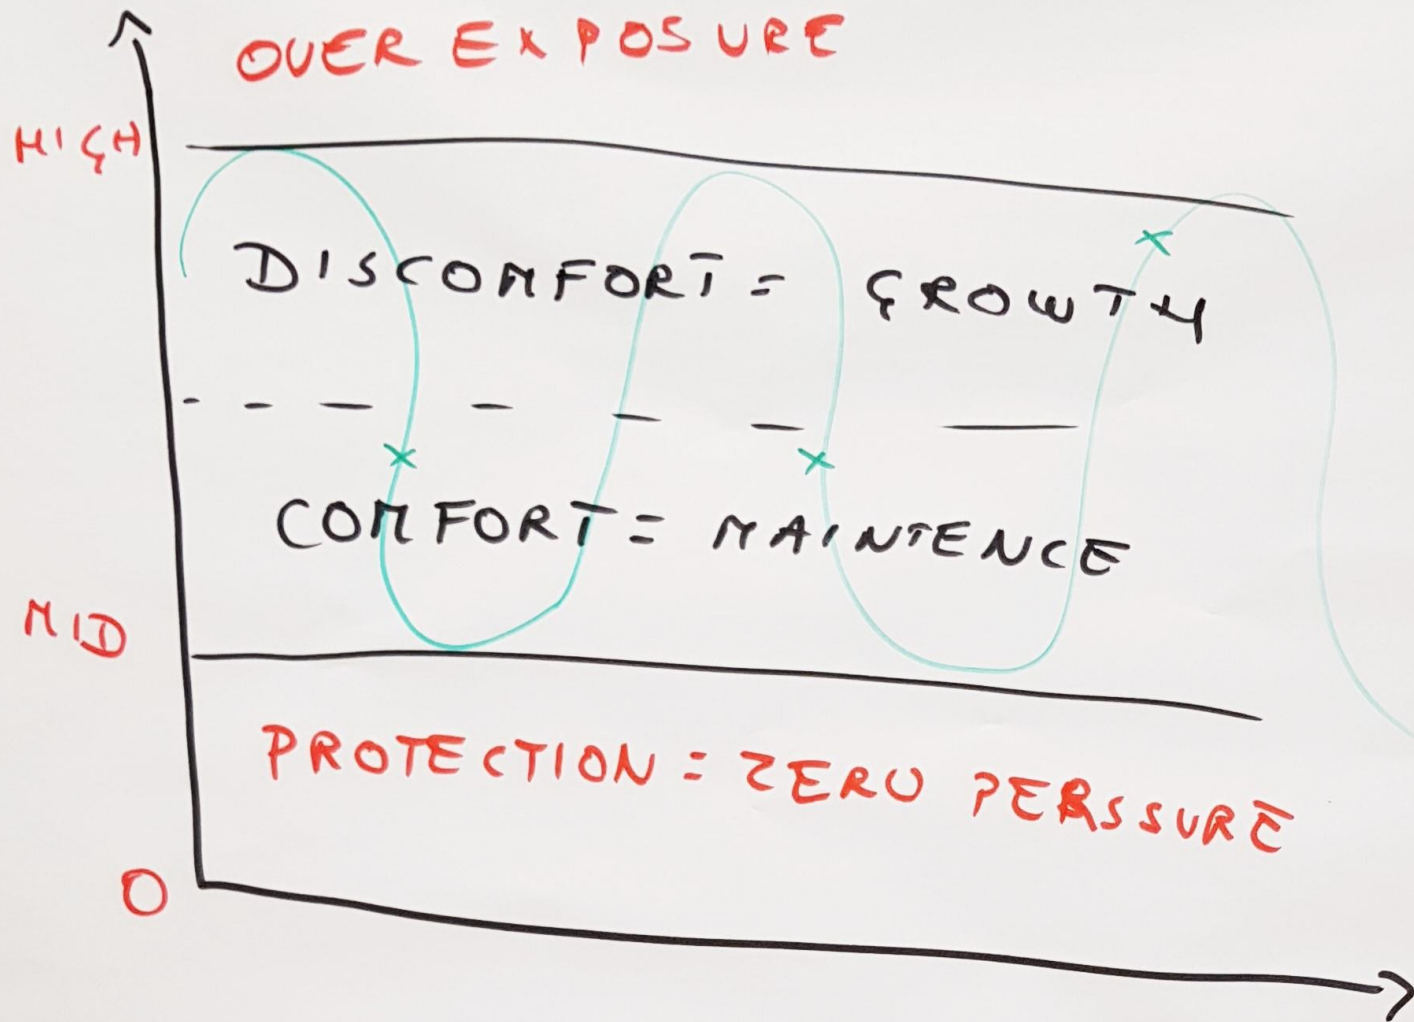 OVER EXPOSURE
HIGH
DISCOMFORT = GROWTH
COMFORT = MAINTENCE
MID
PROTECTION = ZERO PERSSURE
0